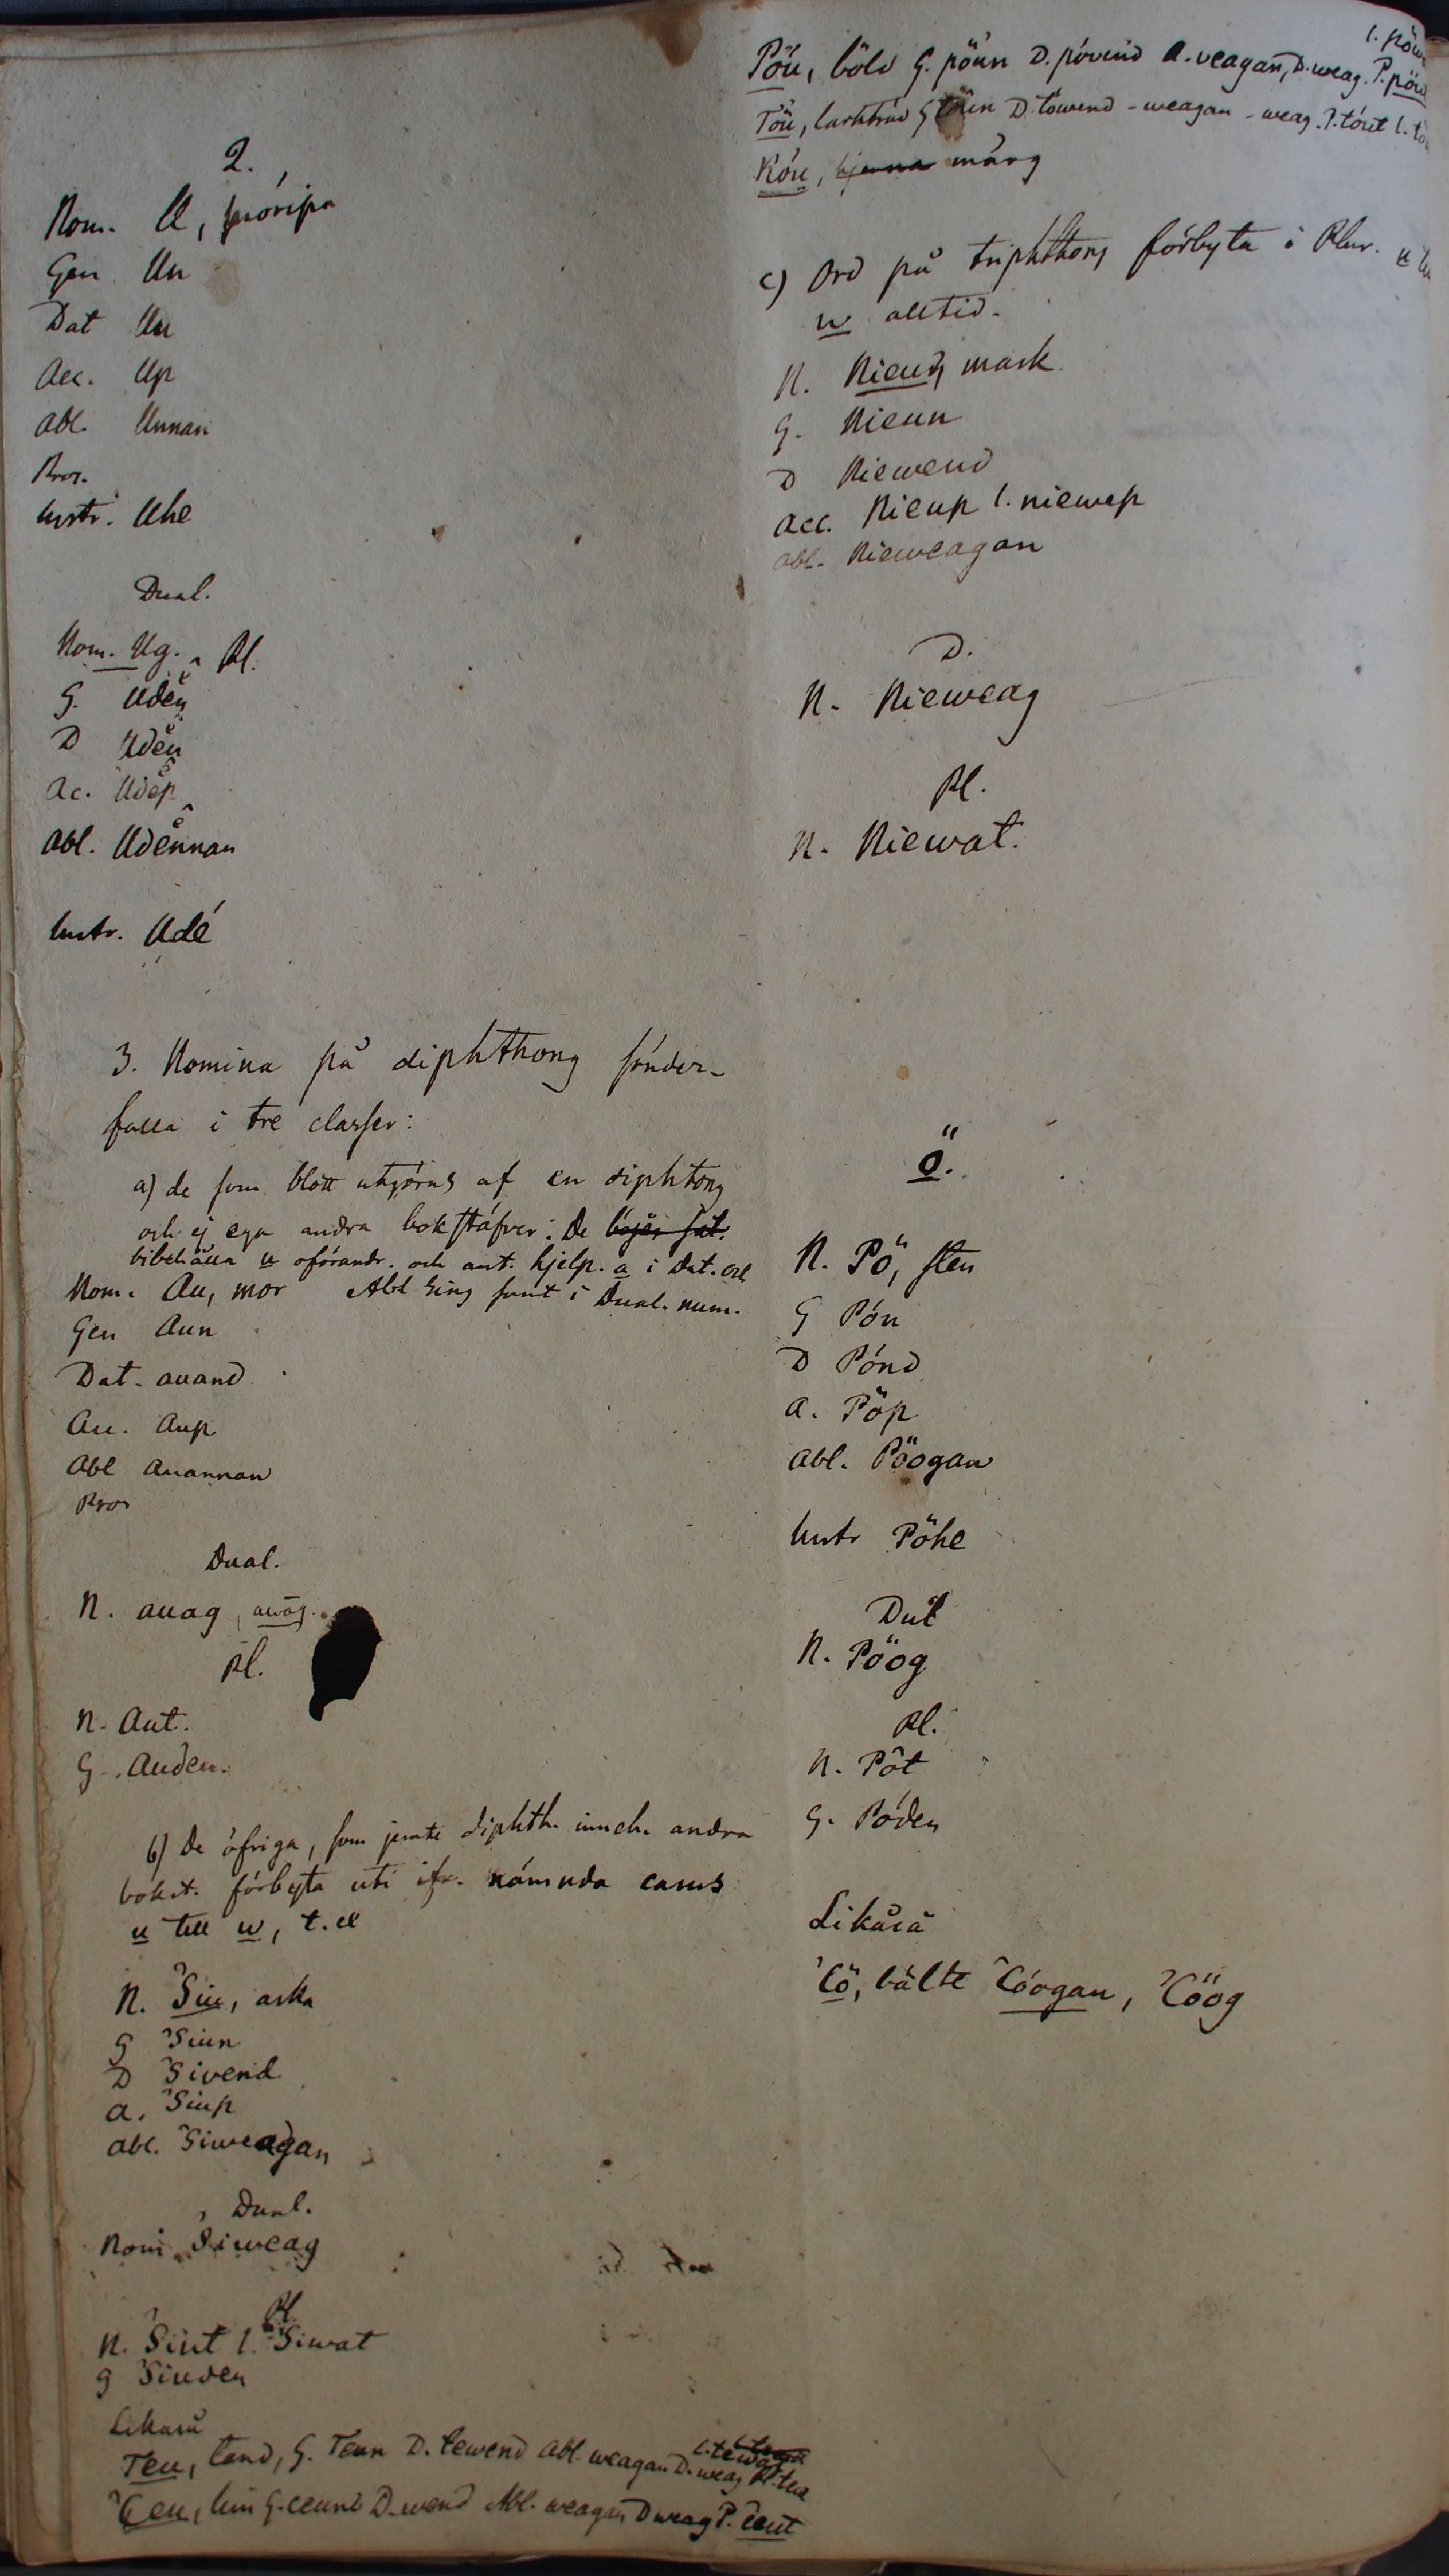 2.
Nom. U,
Gen Un
Dat Un
Acc. Up
Abl. Unnan
Pros.
Instr. Uhe
Dual.
Nom. Ug. Pl.
G. Uden
D Uden
Ac. Udep
Abl. Udennan
Instr. Udé
3. Nomina på diphthong sönder-
falla i tre classer:
a) de som blott utgöras af en diphtong
och ej ega andra bokstäfver. De
bibehålla u oförandr. och ant. hjelp. a i Dat. och
Nom. Au, mor Abl Sing samt i Dual. num.
Gen Aun
Dat. auand
Acc. Aup
Abl Auannan
Pros
Dual.
N. auag, awag.
Pl.
N. Aut.
G. Auden.
b) De öfriga, som jemte diphth. inneh. andra
bokst. förbyta uti ifr. nämnda casus
u till w, t. ex
N. Siu, aska
G Siun
D Sivend
A. Siup
Abl. Siweagan
Dual.
Nom Siweag
Pl.
N. Siut l. Siwat
G Siuden
Likaså
Teu, tand, G. Teun D. tewend Abl. weagan D. weag Pl. teu
Ceu, G. ceunD. wend Abl. weagan D weag P. ceut
l. pöw
Pöu, böld G. pöun D. pövend A. veagan, D. weag. P. pöu
Töu, G töun D. töwend - weagan - weag. P. töut l. tö
Köu, märg
c) Ord på triphthong förbyta i Plur. u
w alltid.
N. Nieu, mask
G. Nieun
D Niewend
Acc. Nieup l. niewep
Abl. Nieweagan
D.
N. Nieweag
Pl.
N. Niewat.
Ö.
N. Pö, sten
G Pön
D Pönd
A. Pöp
Abl. Pöogan
Instr Pöhe
Dual
N. Pöog
Pl.
N. Pöt
G. Pöden
Likaså
Cö, bälte Cöogan, Cöög